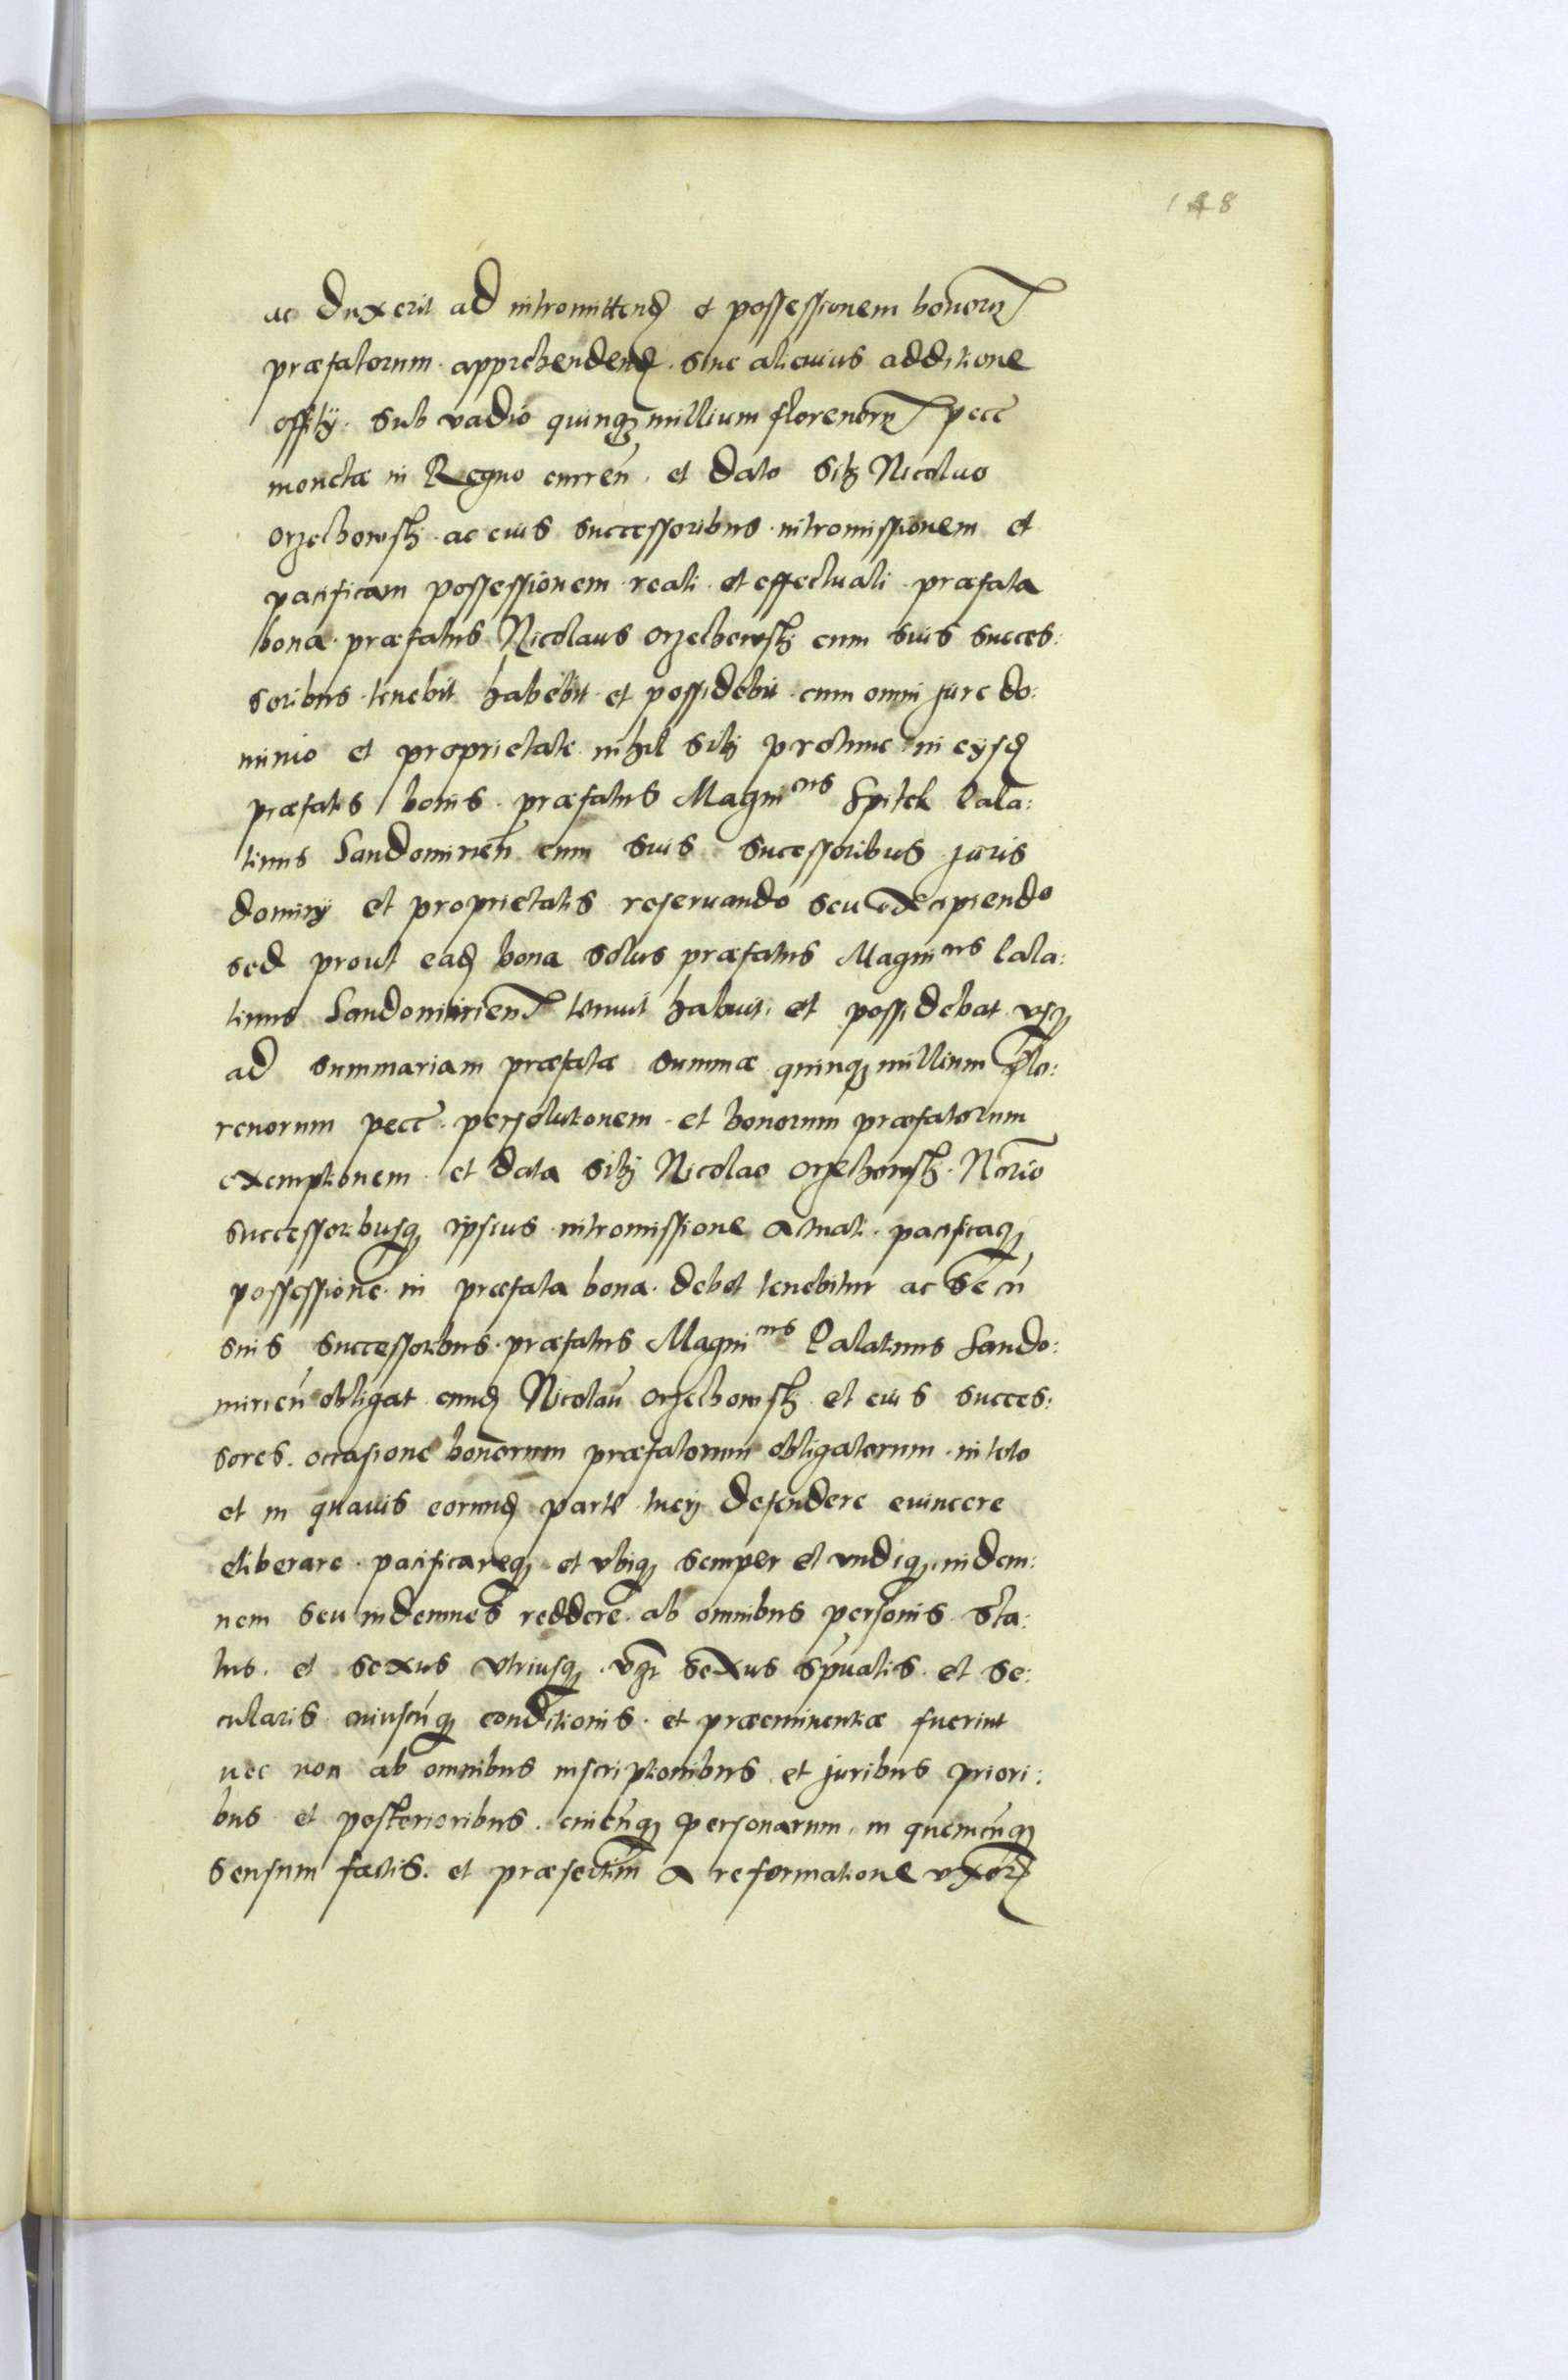 148
ac duxerit ad intromittend et possessionem bonorum
præfatorum. apprehendend. sine alicuius additione
offitÿ. sub vadio quinque millium florenorum pecc
monetæ in Regno curren. et dato sibi Nicolao
Orzechowskj. ac eius successoribus. intromissionem et
pacificam possessionem. reali. et effectuali. præfata
bona. præfatus Nicolaus Orzechowskj cum suis succes:
soribus. tenebit habebit. et possidebit. cum omni jure do:
minio et proprietate nihil sibi protunc in eÿsd
præfatis bonis. præfatus Magnicus Spitek Pala:
tinus Sandomirien cum suis sucessoribus juris
dominÿ et proprietatis reseruando seu excipiendo
sed prout ead bona solus præfatus Magnicus Pala:
tinus Sandomirien tenuit habuit. et possidebat vsque
ad summariam præfatæ summæ quinque millium flo:
renorum pecc. persolutionem. et bonorum præfatorum
exemptionem. et data sibi Nicolao Orzechowskj. Notario
successoribusque ipsius. intromissione actuali. pacificaque
possessione. in præfata bona. debet tenebitur ac se cu
suis successoribus. præfatus Magnicus Palatinus Sando:
mirien obligat. eund Nicolau Orzechowskj. et eius succes:
sores. occasione bonorum præfatorum obligatorum. in toto
et in quauis eorund parte tuerj defendere euincere
eliberare. pacificareque. et vbique semper et vndique. indem:
nem seu indemnes reddere. ab omnibus personis. sta:
tus. et sexus vtriusque. sexus spualis. et se:
cularis. cuiuscunque conditionis. et præeminentiæ fuerint
nec non ab omnibus inscriptionibus et juribus priori:
bus et posterioribus. personarum. in quemcunque
sensum factis. et præsertim a reformatione vxor